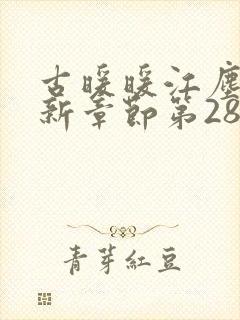 古暖暖江塵
新章節第28
青芽紅豆